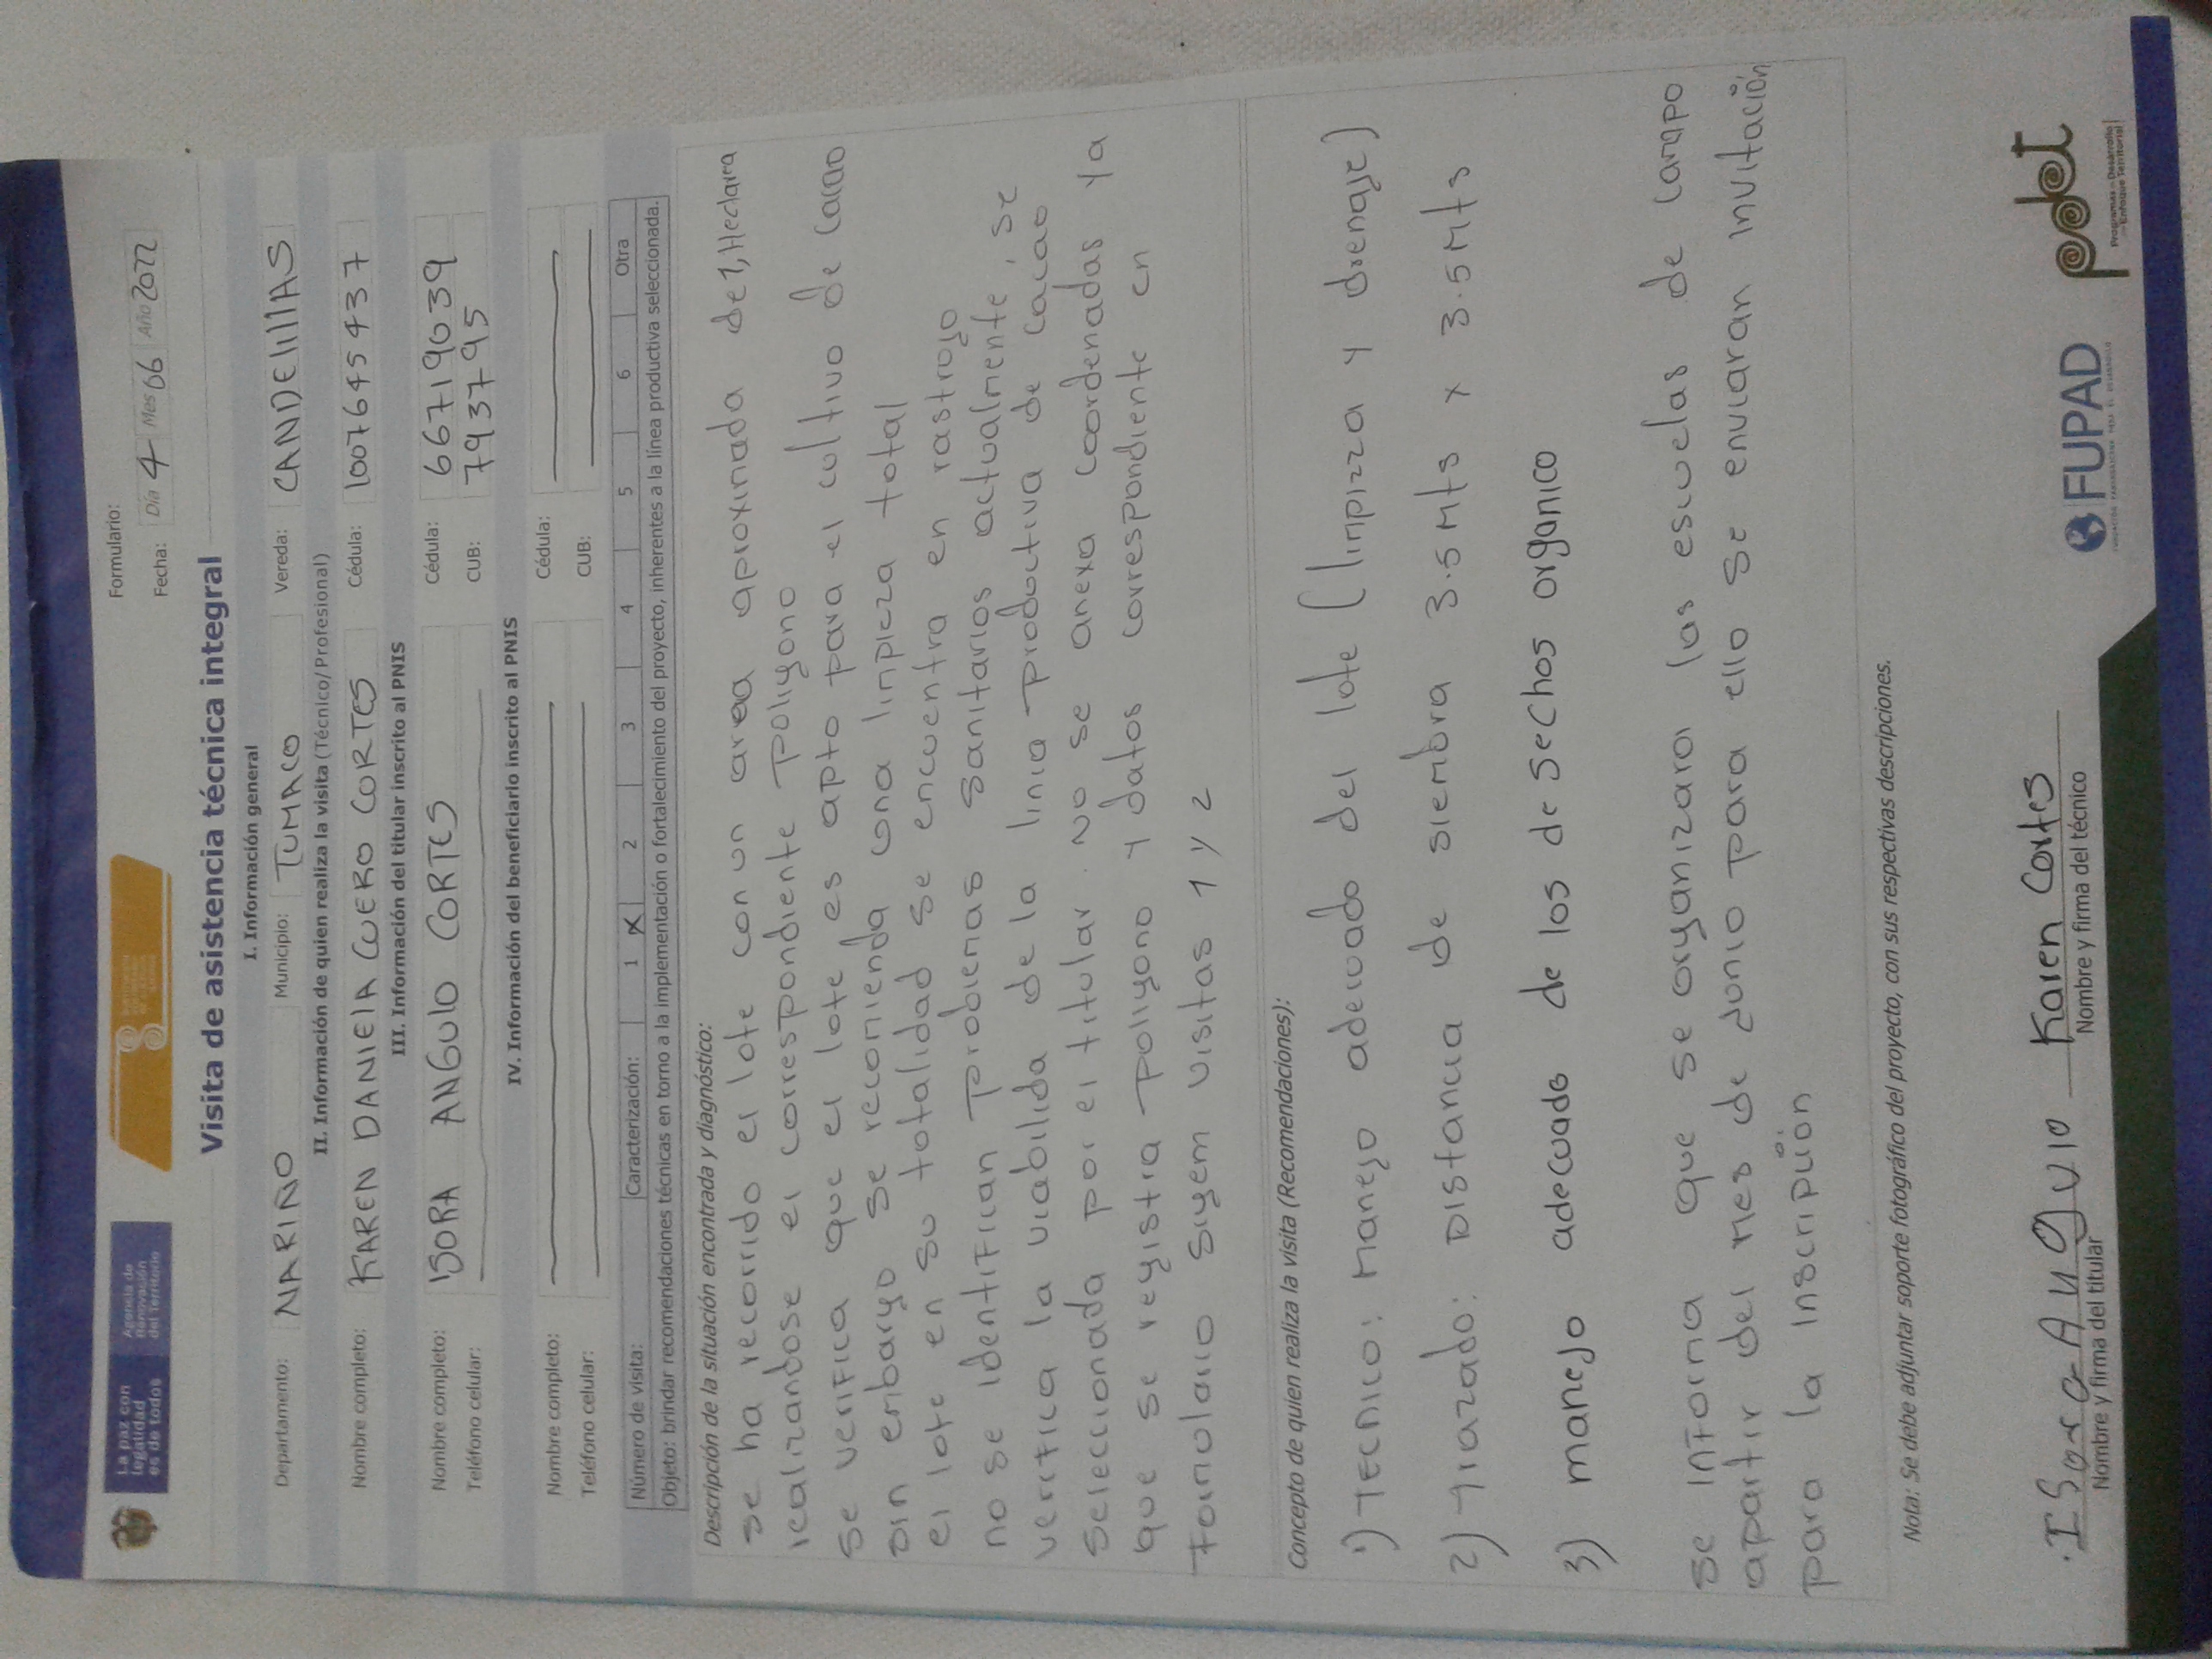 La paz con
legalidad
es de todos
Agencia de
Renovación
del Territorio
Formulario:
Fecha: Día 4 Mes 06 Año 2022
Visita de asistencia técnica integral
I. Información general
Departamento: NARIÑO Municipio: TUMACO Vereda: CANDElIllAS
II. Información de quien realiza la visita (Técnico/Profesional)
Nombre completo: KAREN DANIElA CUERO CORTES Cédula: 1007645437
III. Información del titular inscrito al PNIS
Nombre completo: ISORA ANGUlO CORTES Cédula: 66719039
Teléfono celular: CUB: 793795
IV. Información del beneficiario inscrito al PNIS
Nombre completo: Cédula:
Teléfono celular: CUB:
Número de visita: Caracterización: 1 X 2 3 4 5 6 Otra
Objeto: brindar recomendaciones técnicas en torno a la implementación o fortalecimiento del proyecto, inherentes a la línea productiva seleccionada.
Descripción de la situación encontrada y diagnóstico:
se ha recorrido el lote con un area aproximada de 1, Hectarea
realizandose el correspondiente poligono
se verifica que el lote es apto para el cultivo de cacao
sin embargo se recomienda una limpieza total
el lote en su totalidad se encuentra en rastrojo
no se identifican problemas sanitarios actualmente, se
verifica la viabilida de la linia productiva de cacao
seleccionada por el titular. No se anexa coordenadas ya
que se registra poligono y datos correspondiente en
formulario sigem visitas 1 y 2
Concepto de quien realiza la visita (Recomendaciones):
1) Tecnico: manejo adecuado del lote (limpizza y drenaje)
2) trazado: Distancia de siembra 3.5 Mts x 3.5 Mts
3) manejo adecuado de los desechos organico
se informa que se organizara las escuelas de campo
apartir del mes de Junio para ello se enviaran invitación
para la inscripción
Nota: Se debe adjuntar soporte fotográfico del proyecto, con sus respectivas descripciones.
ISora Angulo
Nombre y firma del titular
Karen Cortes
Nombre y firma del técnico
FUPAD
pdet
Programas de Desarrollo
con Enfoque Territorial